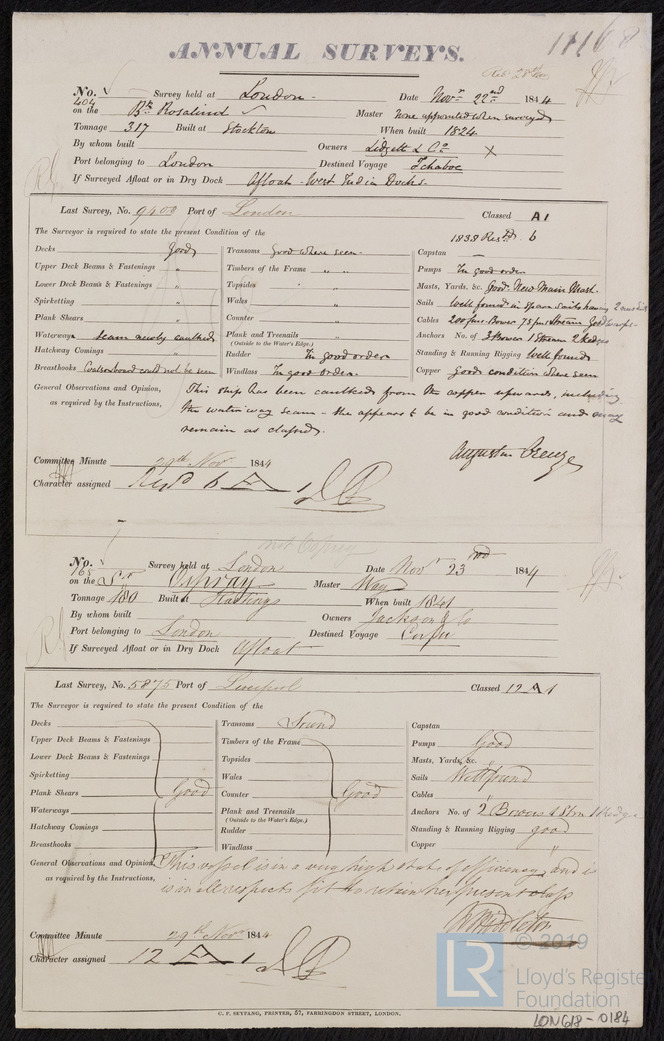 ANNUAL SURVEYS.
No. 404 Survey held at London Date Novr 22nd 1844
on the Bk Rosalind Master none appointed when surveyed
Tonnage 317 Built at Stockton When built 1824
By whom built Owners Lidgett & Co
Port belonging to London Destined Voyage Ichaboe
If Surveyed Afloat or in Dry Dock Afloat - West India Docks.
Last Survey, No. 9403 Port of London Classed A1
The Surveyor is required to state the present Condition of the 1838 Restd. 6
Decks Good Transoms Good where seen Capstan —
Upper Deck Beams & Fastenings " Timbers of the Frame " " Pumps In good order
Lower Deck Beams & Fastenings " Topsides " " Masts, Yards, &c. Good. New Main Mast.
Spirketting " Wales " Sails Well found in spare sails having 2
Plank Shears " Counter " Cables 200 fms Bower 75 fms Stream Good
Waterways seam newly caulked Plank and Treenails " Anchors No. of 3 Bower 1 Stream 2 Kedges
(Outside to the Water's Edge.)
Hatchway Comings " Rudder In good order Standing & Running Rigging Well found
Breasthooks could not be seen Windlass In good order. Copper Good condition where seen
General Observations and Opinion, This ship has been caulked from the copper upwards, including
as required by the Instructions, the waterway seam - she appears to be in good condition and may
remain as classed.
Augustin Creuze
Committee Minute 29th Nov 1844
Character assigned Resd 6 A 1
not Osprey
No. 165 Survey held at London Date Novr 23rd 1844
on the Sr Ospray Master Way
Tonnage 180 Built at Hastings When built 1841
By whom built Owners Jackson & Co
Port belonging to London Destined Voyage Corfu
If Surveyed Afloat or in Dry Dock Afloat
Last Survey, No. 5875 Port of Liverpool Classed 12 A 1
The Surveyor is required to state the present Condition of the
Decks Transoms Sound Capstan
Upper Deck Beams & Fastenings Timbers of the Frame Pumps Good
Lower Deck Beams & Fastenings Topsides Masts, Yards, &c. "
Spirketting Wales Sails Well found
Plank Shears Good Counter Good Cables "
Waterways Plank and Treenails Anchors No. of 2 Bowers 1 Strm 1 Kedge
(Outside to the Water's Edge.)
Hatchway Comings Rudder Standing & Running Rigging good
Breasthooks Windlass Copper "
General Observations and Opinion, This vessel is in a very high state of efficiency, and is
as required by the Instructions, is in all respects fit to retain her present class
W Middleton
Committee Minute 29th Novr 1844
Character assigned 12 A 1
C. F. SEYFANG, PRINTER, 57, FARRINGDON STREET, LONDON.
© 2019
LR Lloyd's Register
Foundation
LON618-0184